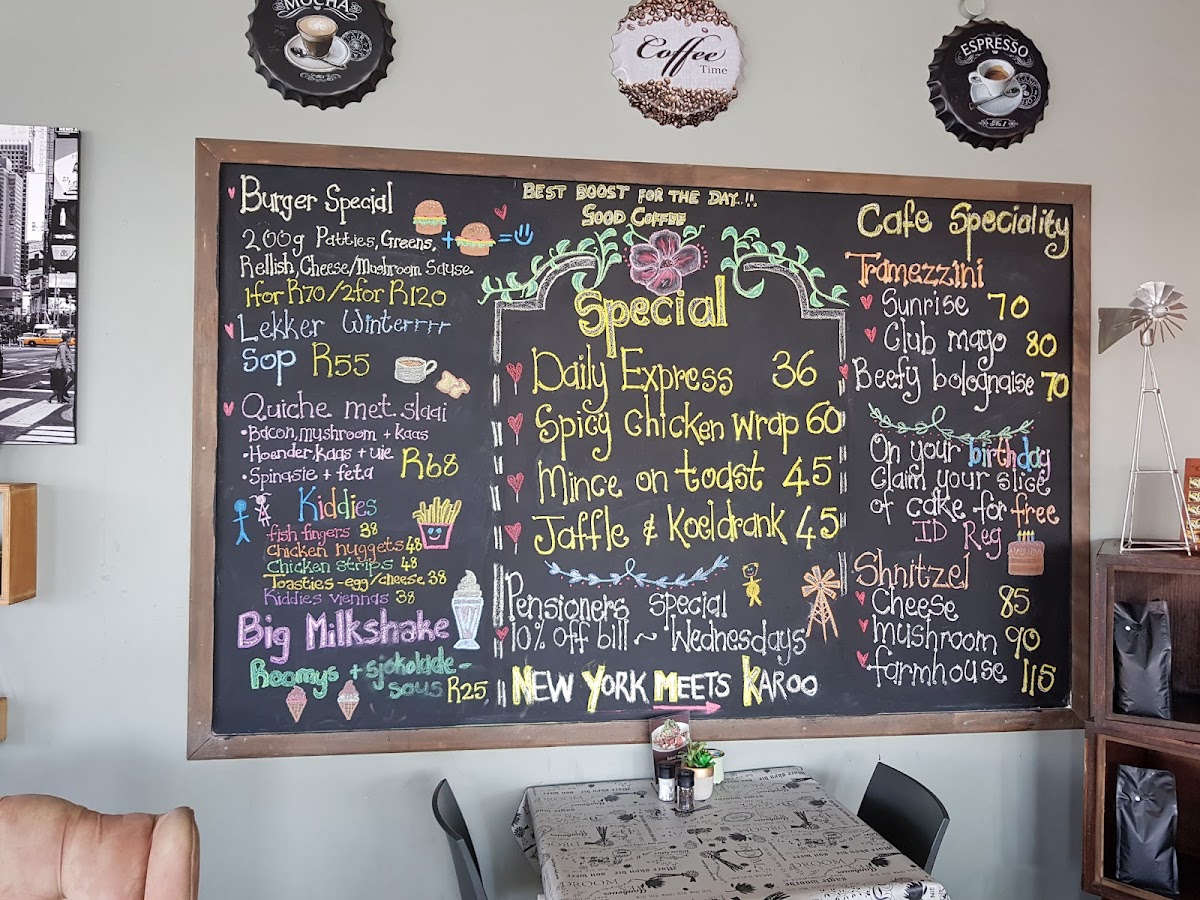 MOCHA
Coffee
Time
ESPRESSO
No.1
Burger Special
200g Patties, Greens,
Rellish, Cheese/Mushroom Sause
1 for R70 / 2 for R120
Lekker Winterrrr
Sop R55
Quiche met slaai
• Bacon, mushroom + kaas
• Hoender, kaas + uie
• Spinasie + feta
R68
Kiddies
fish fingers 38
chicken nuggets 48
Chicken strips 48
Toasties - egg/cheese 38
Kiddies viennas 38
Big Milkshake
Roomys + sjokolade-
sous R25
BEST BOOST FOR THE DAY..!!.
GOOD COFFEE
Special
Daily Express 36
Spicy Chicken Wrap 60
Mince on toast 45
Jaffle & Koeldrank 45
Pensioners Special
10% off bill ~ Wednesdays
NEW YORK MEETS KAROO
Cafe Speciality
Tramezzini
Sunrise 70
Club mayo 80
Beefy bolognaise 70
On your birthday
Claim your slice
of cake for free
ID Req
Shnitzel
Cheese 85
mushroom 90
farmhouse 115